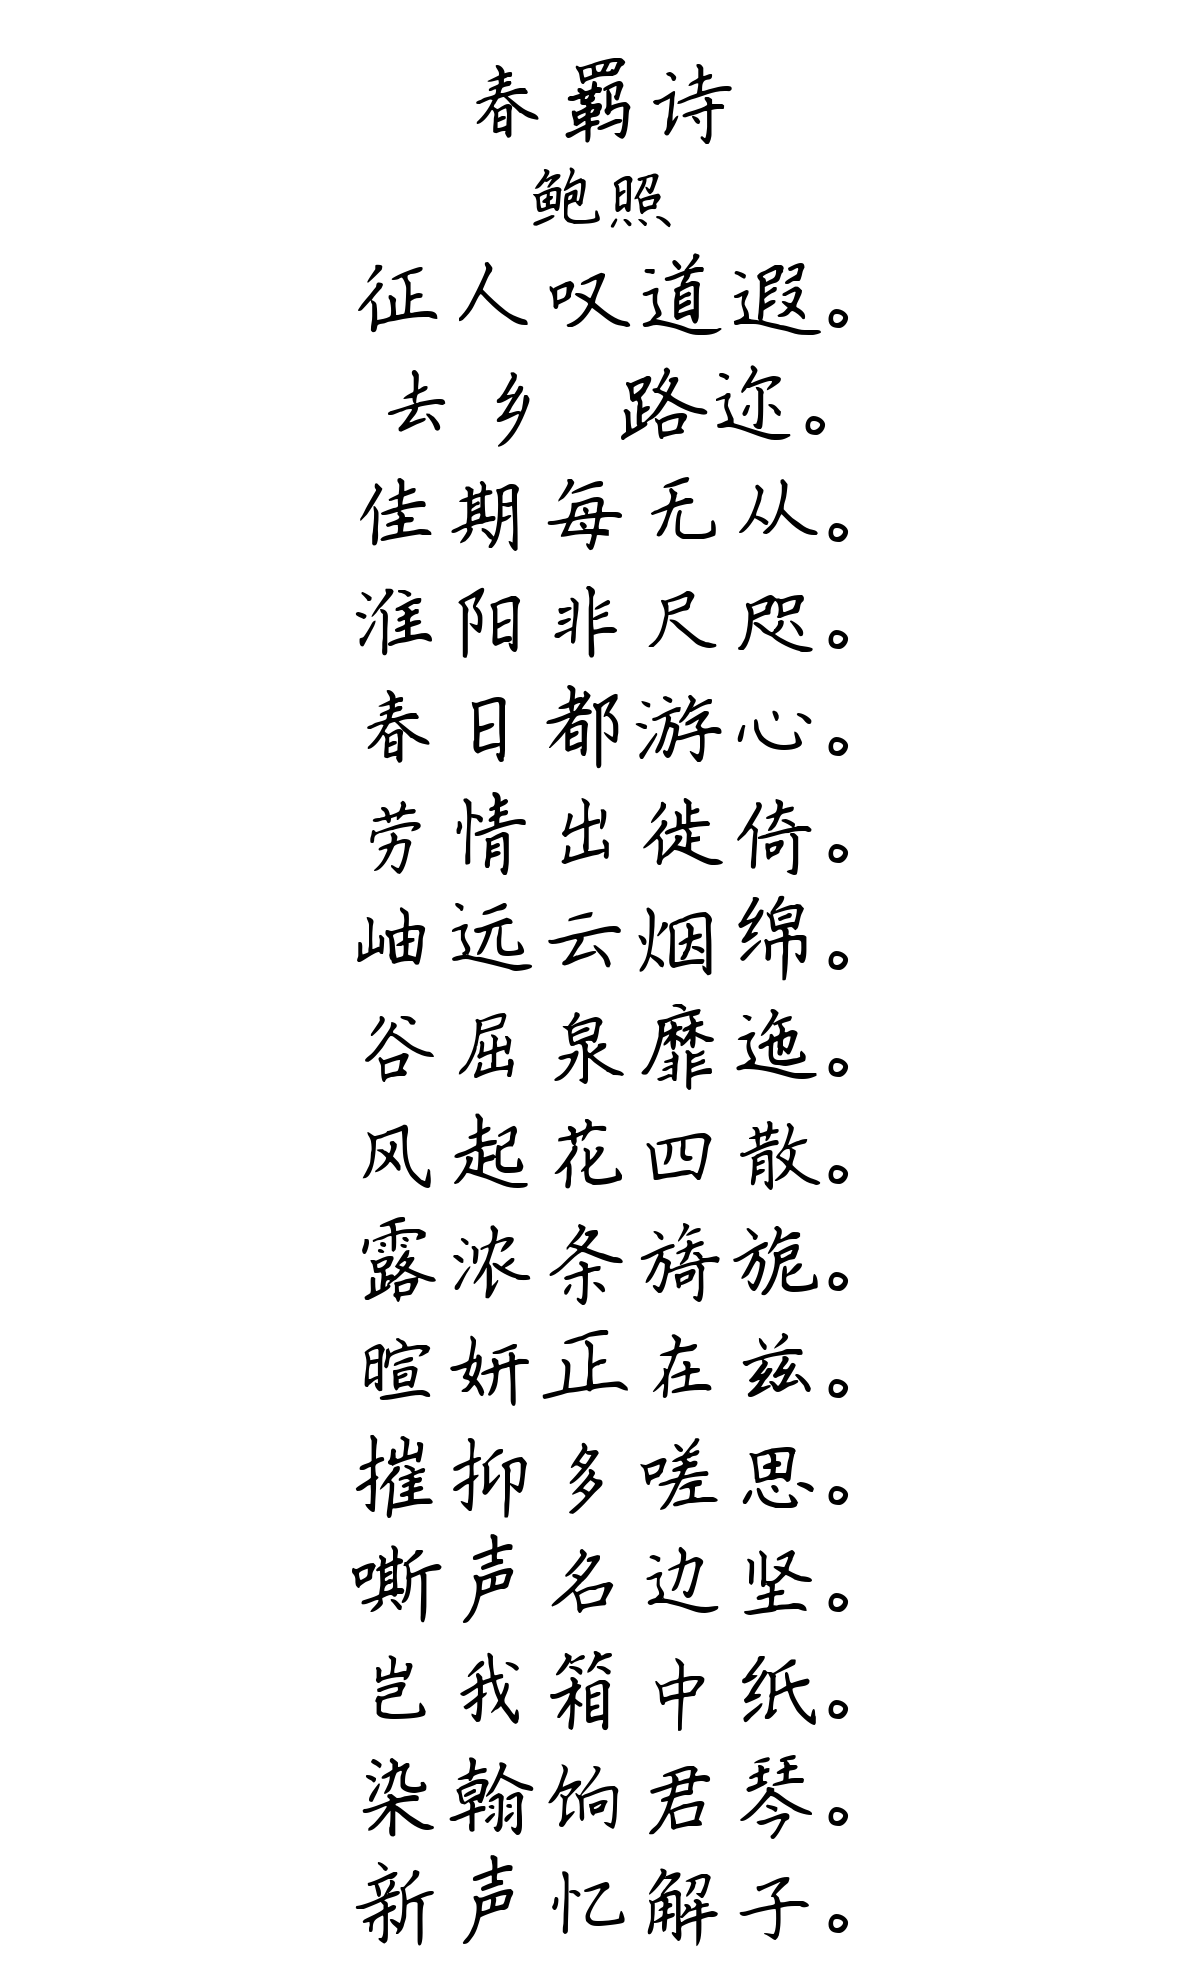 春羁诗
鲍照
征人叹道遐。
去乡 路迩。
佳期每无从。
淮阳非尺咫。
春日都游心。
劳情出徙倚。
岫远云烟绵。
谷屈泉靡迤。
风起花四散。
露浓条旖旎。
暄妍正在兹。
摧抑多嗟思。
嘶声名边坚。
岂我箱中纸。
染翰饷君琴。
新声忆解子。